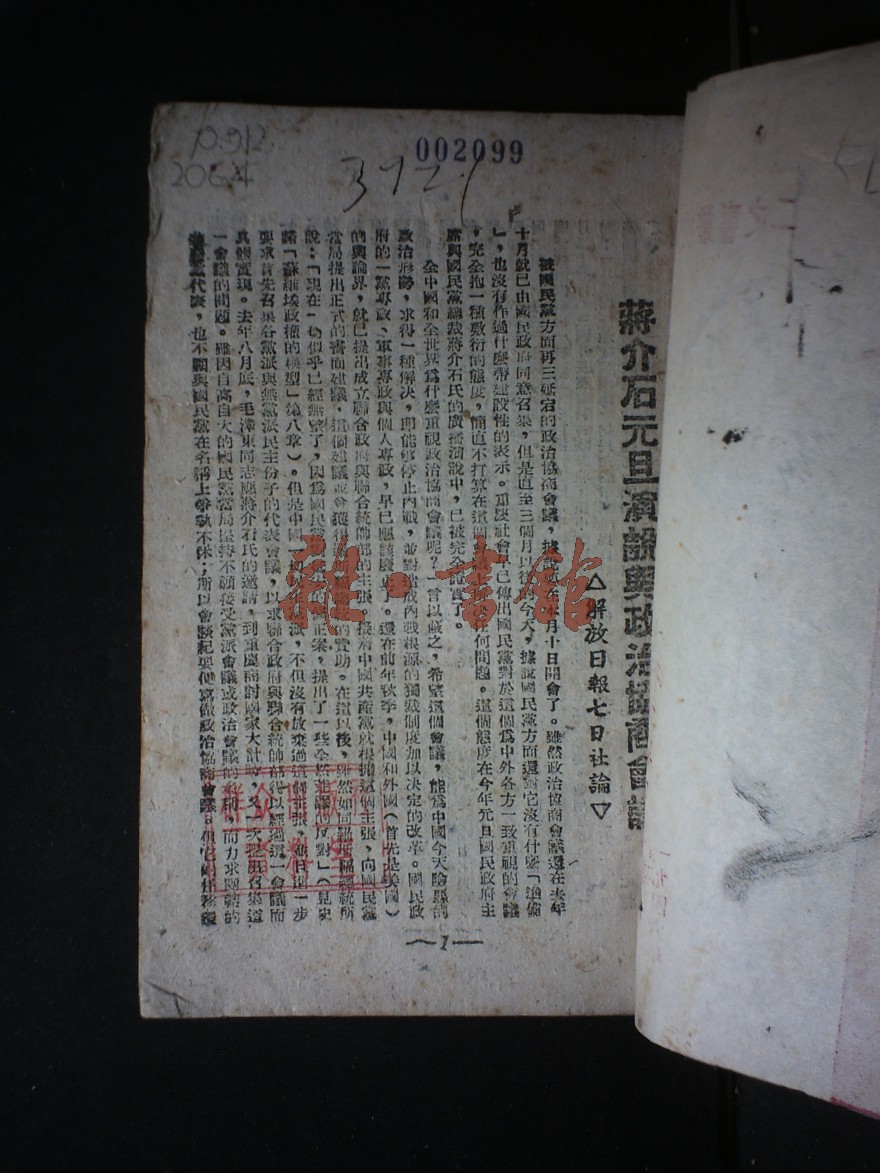 002099
蔣介石元旦演說與政治協商會議
△解放日報七日社論▽
被國民黨方面再三延宕的政治協商會議,據說要在本月十日開會了。雖然政治協商會議還在去年
十月就已由國民政府同意召集,但是直至三個月以後的今天,據說國民黨方面還對它沒有什麼「準備
」,也沒有作過什麼帶建設性的表示。重慶社會早已傳出國民黨對於這個為中外各方一致重視的會議
,完全抱一種敷衍的態度,簡直不打算在這個會議上解決任何問題。這個態度在今年元旦國民政府主
席與國民黨總裁蔣介石氏的廣播演說中,已被完全證實了。
全中國和全世界為什麼重視政治協商會議呢?一言以蔽之,希望這個會議,能為中國今天險惡的
政治形勢,求得一種解決,即能够停止內戰,並對造成內戰根源的獨裁制度加以決定的改革。國民政
府的一黨專政、軍事專政與個人專政,早已應該廢止了。還在前年秋季,中國和外國(首先是美國)
的輿論界,就已提出成立聯合政府與聯合統帥部的主張。接着中國共產黨就根據這個主張,向國民黨
當局提出正式的書面建議,這個建議並會獲得 的贊助。在這以後,雖然如同羅 福總統所
說:「現在一切似乎已經無望了,因為國民黨 正案,提出了一些全然荒謬的反對」(見史
諾「蘇維埃政權的模型」第八章)。但是中國 派,不但沒有放棄過這個主張,並且進一步
要求首先召集各黨派與無黨派民主份子的代表會議,以求聯合政府與聯合統帥部得以經過這一會議而
具體實現。去年八月底,毛澤東同志應蔣介石氏的邀請,到重慶商討國家大計時,又一次提出召集這
一會議的問題。雖因自高自大的國民黨當局堅持不願接受黨派會議或政治會議的名稱,而力求團結的
代表,也不願與國民黨在名稱上爭執不休;所以會談紀要便寫做政治協商會議。但它的任務
—1—
雜·書館